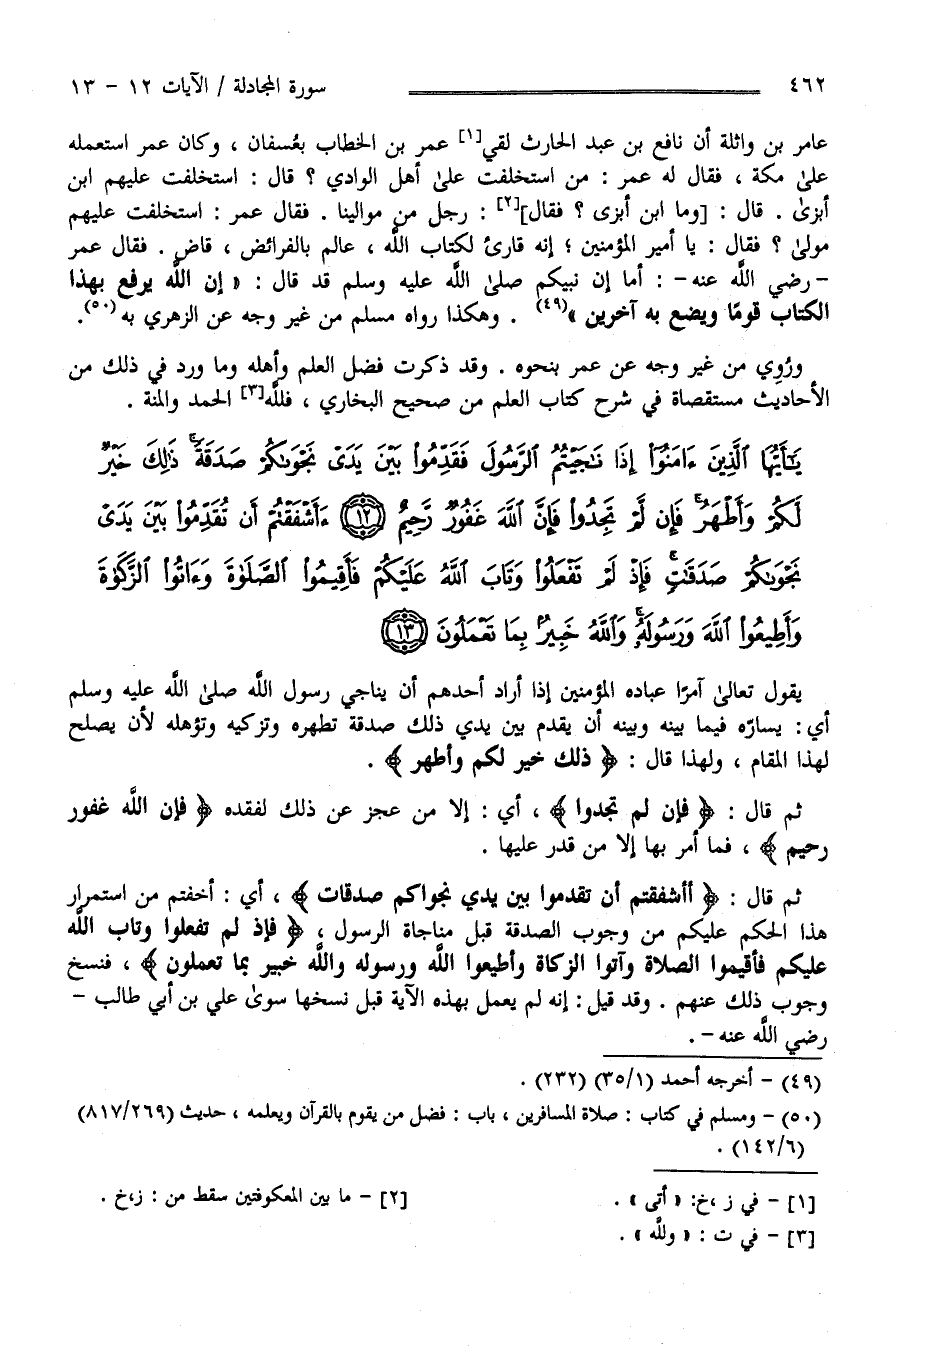 ٤٦٢ سورة المجادلة / الآيات ١٢ - ١٣
عامر بن واثلة أن نافع بن عبد الحارث لقي[١] عمر بن الخطاب بعُسفان ، وكان عمر استعمله
علىٰ مكة ، فقال له عمر : من استخلفت علىٰ أهل الوادي ؟ قال : استخلفت عليهم ابن
أبزىٰ . قال : [وما ابن أبزى ؟ فقال][٢] : رجل من موالينا . فقال عمر : استخلفت عليهم
مولىٰ ؟ فقال : يا أمير المؤمنين ؛ إنه قارئ لكتاب اللَّه ، عالم بالفرائض ، قاض . فقال عمر
-رضي اللَّه عنه- : أما إن نبيكم صلىٰ اللَّه عليه وسلم قد قال : « إن اللَّه يرفع بهذا
الكتاب قومًا ويضع به آخرين »(٤٩) . وهكذا رواه مسلم من غير وجه عن الزهري به(٥٠).
ورُوِي من غير وجه عن عمر بنحوه . وقد ذكرت فضل العلم وأهله وما ورد في ذلك من
الأحاديث مستقصاة في شرح كتاب العلم من صحيح البخاري ، فللَّه[٣] الحمد والمنة .
يَـٰٓأَيُّهَا ٱلَّذِينَ ءَامَنُوٓا۟ إِذَا نَـٰجَيْتُمُ ٱلرَّسُولَ فَقَدِّمُوا۟ بَيْنَ يَدَىْ نَجْوَىٰكُمْ صَدَقَةً ۚ ذَٰلِكَ خَيْرٌ
لَّكُمْ وَأَطْهَرُ ۚ فَإِن لَّمْ تَجِدُوا۟ فَإِنَّ ٱللَّهَ غَفُورٌ رَّحِيمٌ ﴿١٢﴾ ءَأَشْفَقْتُمْ أَن تُقَدِّمُوا۟ بَيْنَ يَدَىْ
نَجْوَىٰكُمْ صَدَقَـٰتٍ ۚ فَإِذْ لَمْ تَفْعَلُوا۟ وَتَابَ ٱللَّهُ عَلَيْكُمْ فَأَقِيمُوا۟ ٱلصَّلَوٰةَ وَءَاتُوا۟ ٱلزَّكَوٰةَ
وَأَطِيعُوا۟ ٱللَّهَ وَرَسُولَهُۥ ۚ وَٱللَّهُ خَبِيرٌۢ بِمَا تَعْمَلُونَ ﴿١٣﴾
يقول تعالىٰ آمرًا عباده المؤمنين إذا أراد أحدهم أن يناجي رسول اللَّه صلىٰ اللَّه عليه وسلم
أي : يسارّه فيما بينه وبينه أن يقدم بين يدي ذلك صدقة تطهره وتزكيه وتؤهله لأن يصلح
لهذا المقام ، ولهذا قال : ﴿ ذلك خير لكم وأطهر ﴾ .
ثم قال : ﴿ فإن لم تجدوا ﴾ ، أي : إلا من عجز عن ذلك لفقده ﴿ فإن اللَّه غفور
رحيم ﴾ ، فما أمر بها إلا من قدر عليها .
ثم قال : ﴿ أأشفقتم أن تقدموا بين يدي نجواكم صدقات ﴾ ، أي : أخفتم من استمرار
هذا الحكم عليكم من وجوب الصدقة قبل مناجاة الرسول ، ﴿ فإذ لم تفعلوا وتاب اللَّه
عليكم فأقيموا الصلاة وآتوا الزكاة وأطيعوا اللَّه ورسوله واللَّه خبير بما تعملون ﴾ ، فنسخ
وجوب ذلك عنهم . وقد قيل : إنه لم يعمل بهذه الآية قبل نسخها سوىٰ علي بن أبي طالب -
رضي اللَّه عنه - .
(٤٩) - أخرجه أحمد (٣٥/١) (٢٣٢) .
(٥٠) - ومسلم في كتاب : صلاة المسافرين ، باب : فضل من يقوم بالقرآن ويعلمه ، حديث (٨١٧/٢٦٩)
(١٤٢/٦) .
[١] - في ز ،خ: « أتى » . [٢] - ما بين المعكوفتين سقط من : ز،خ .
[٣] - في ت : « وللَّه » .